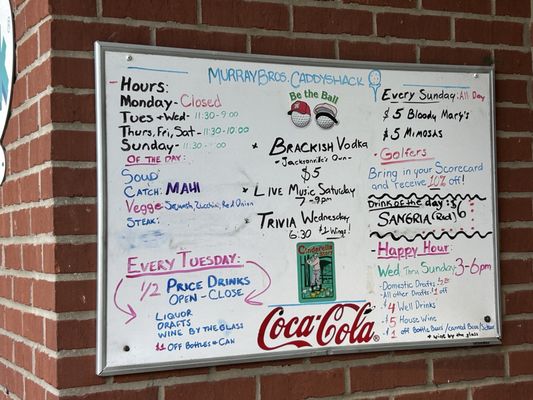 MURRAY BROS. CADDYSHACK
Hours:
Monday - Closed
Tues + Wed - 11:30 - 9:00
Thurs, Fri, Sat - 11:30 - 10:00
Sunday - 11:30 -
OF THE DAY:
SOUP
CATCH: MAHI
Veggie: Squash, Zucchini, Red Onion
STEAK:
EVERY TUESDAY:
1/2 PRICE DRINKS
OPEN - CLOSE
LIQUOR
DRAFTS
WINE BY THE GLASS
$1 OFF BOTTLES + CAN
Be the Ball
BRANISKI Vodka
- Jacksonville's Own -
$5
LIVE MUSIC Saturday
7 - 9pm
TRIVIA Wednesday
6:30 $1 Wings!
Cinderella
Coca-Cola®
Every Sunday: All Day
$5 Bloody Mary's
$5 MIMOSAS
- Golfers -
Bring in your Scorecard
and receive 10% off!
Drink of the day: $6
SANGRIA (Red)
- Happy Hour -
Wed Thru Sunday 3-6pm
- Domestic Drafts
- All other Drafts $1 off
- $4 Well Drinks
- $5 House Wine
- $2 off Bottle Beers/canned Beer/Seltzer
+ wine by the glass